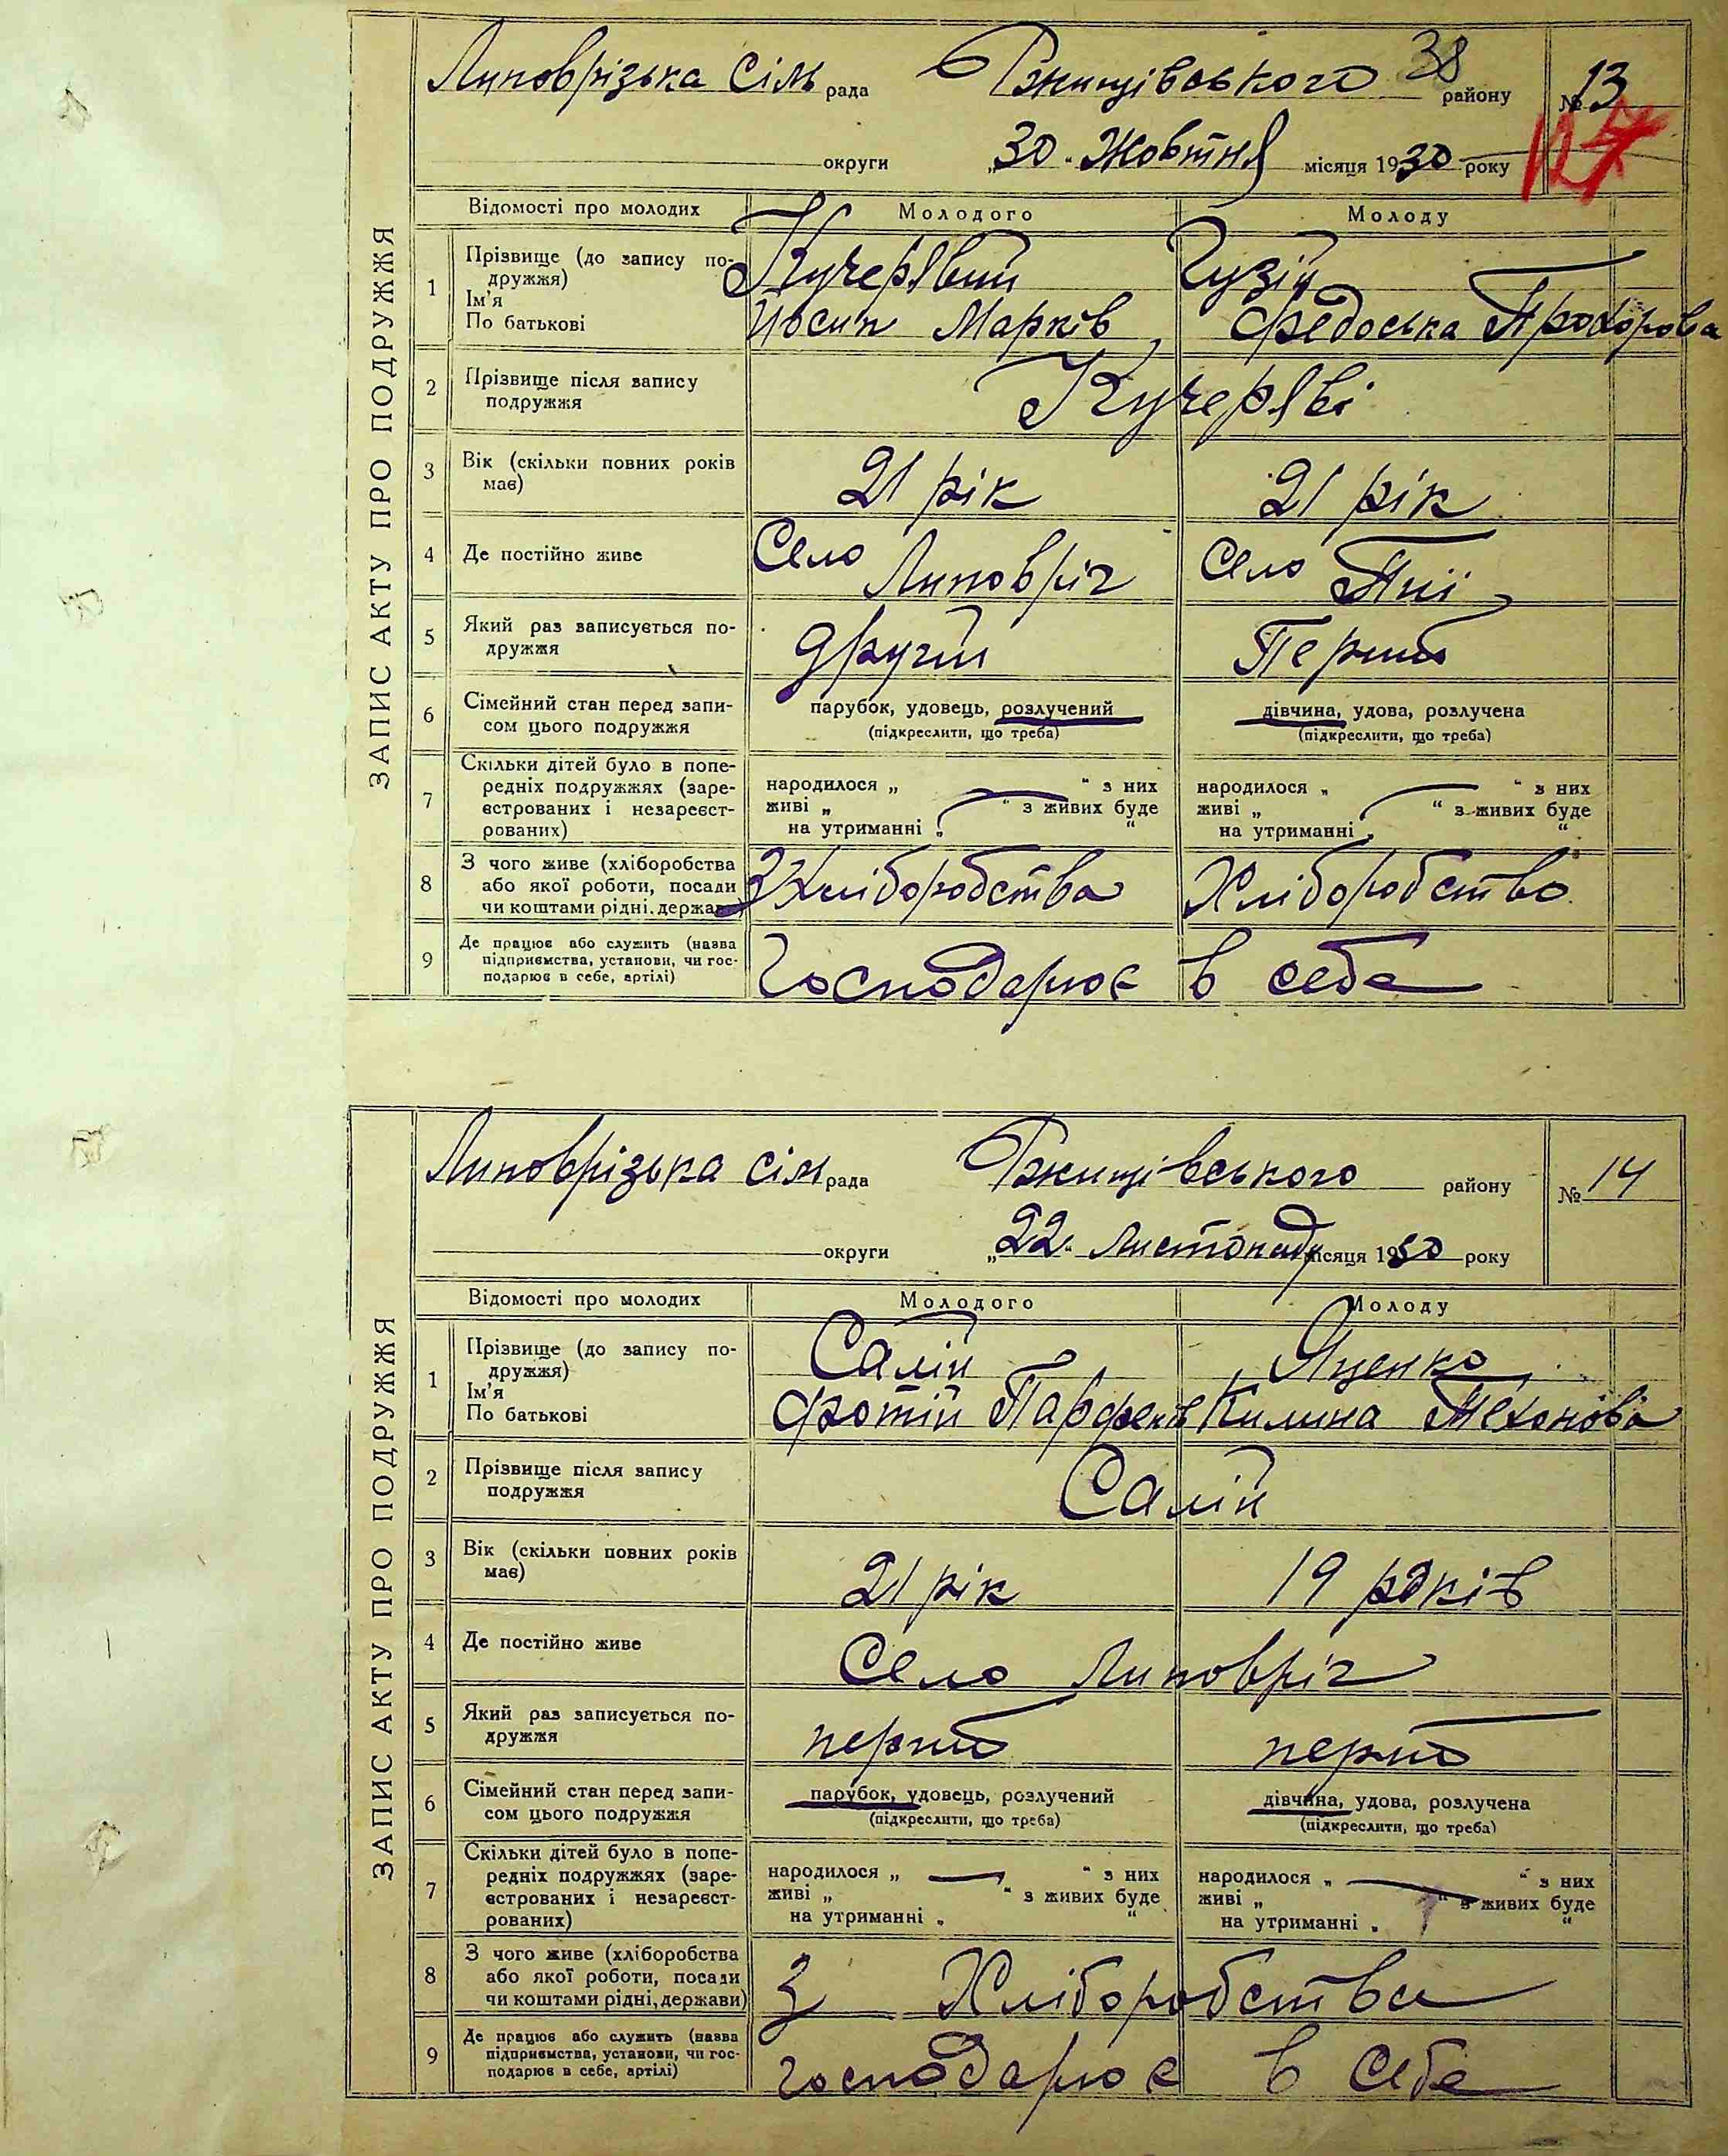 38
Липоврізька Сіль рада Ржищівського району № 13
127
округи „30“ Жовтня місяця 1930 року
ЗАПИС АКТУ ПРО ПОДРУЖЖЯ
Відомості про молодих Молодого Молоду
1 Прізвище (до запису по- Кучерявий Гузій
дружжя)
Ім'я
По батькові Йосип Марків, Федоська Прохорова
2 Прізвище після запису Кучеряві
подружжя
3 Вік (скільки повних років 21 рік 21 рік
має)
4 Де постійно живе Село Липовріг Село Пії
5 Який раз записується по- другий Перший
дружжя
6 Сімейний стан перед запи- парубок, удовець, розлучений дівчина, удова, розлучена
сом цього подружжя (підкреслити, що треба) (підкреслити, що треба)
7 Скільки дітей було в попе-
редніх подружжях (заре- народилося „ “ з них народилося „ “ з них
єстрованих і незареєст- живі „ “ з живих буде живі „ “ з живих буде
рованих) на утриманні „ “ на утриманні „ “
8 З чого живе (хліборобства З Хліборобства Хліборобство
або якої роботи, посади
чи коштами рідні, держави)
9 Де працює або служить (назва Господарює в себе
підприємства, установи, чи гос-
подарює в себе, артілі)
Липоврізька сіль рада Ржищівського району № 14
округи „22“ Листопада місяця 1930 року
ЗАПИС АКТУ ПРО ПОДРУЖЖЯ
Відомості про молодих Молодого Молоду
1 Прізвище (до запису по- Салій Яценко
дружжя)
Ім'я
По батькові Фотій Парфенів Килина Техонова
2 Прізвище після запису Салій
подружжя
3 Вік (скільки повних років 21 рік 19 років
має)
4 Де постійно живе Село Липовріг
5 Який раз записується по- перший перший
дружжя
6 Сімейний стан перед запи- парубок, удовець, розлучений дівчина, удова, розлучена
сом цього подружжя (підкреслити, що треба) (підкреслити, що треба)
7 Скільки дітей було в попе-
редніх подружжях (заре- народилося „ “ з них народилося „ “ з них
єстрованих і незареєст- живі „ “ з живих буде живі „ “ з живих буде
рованих) на утриманні „ “ на утриманні „ “
8 З чого живе (хліборобства З Хліборобства
або якої роботи, посади
чи коштами рідні, держави)
9 Де працює або служить (назва господарює в себе
підприємства, установи, чи гос-
подарює в себе, артілі)